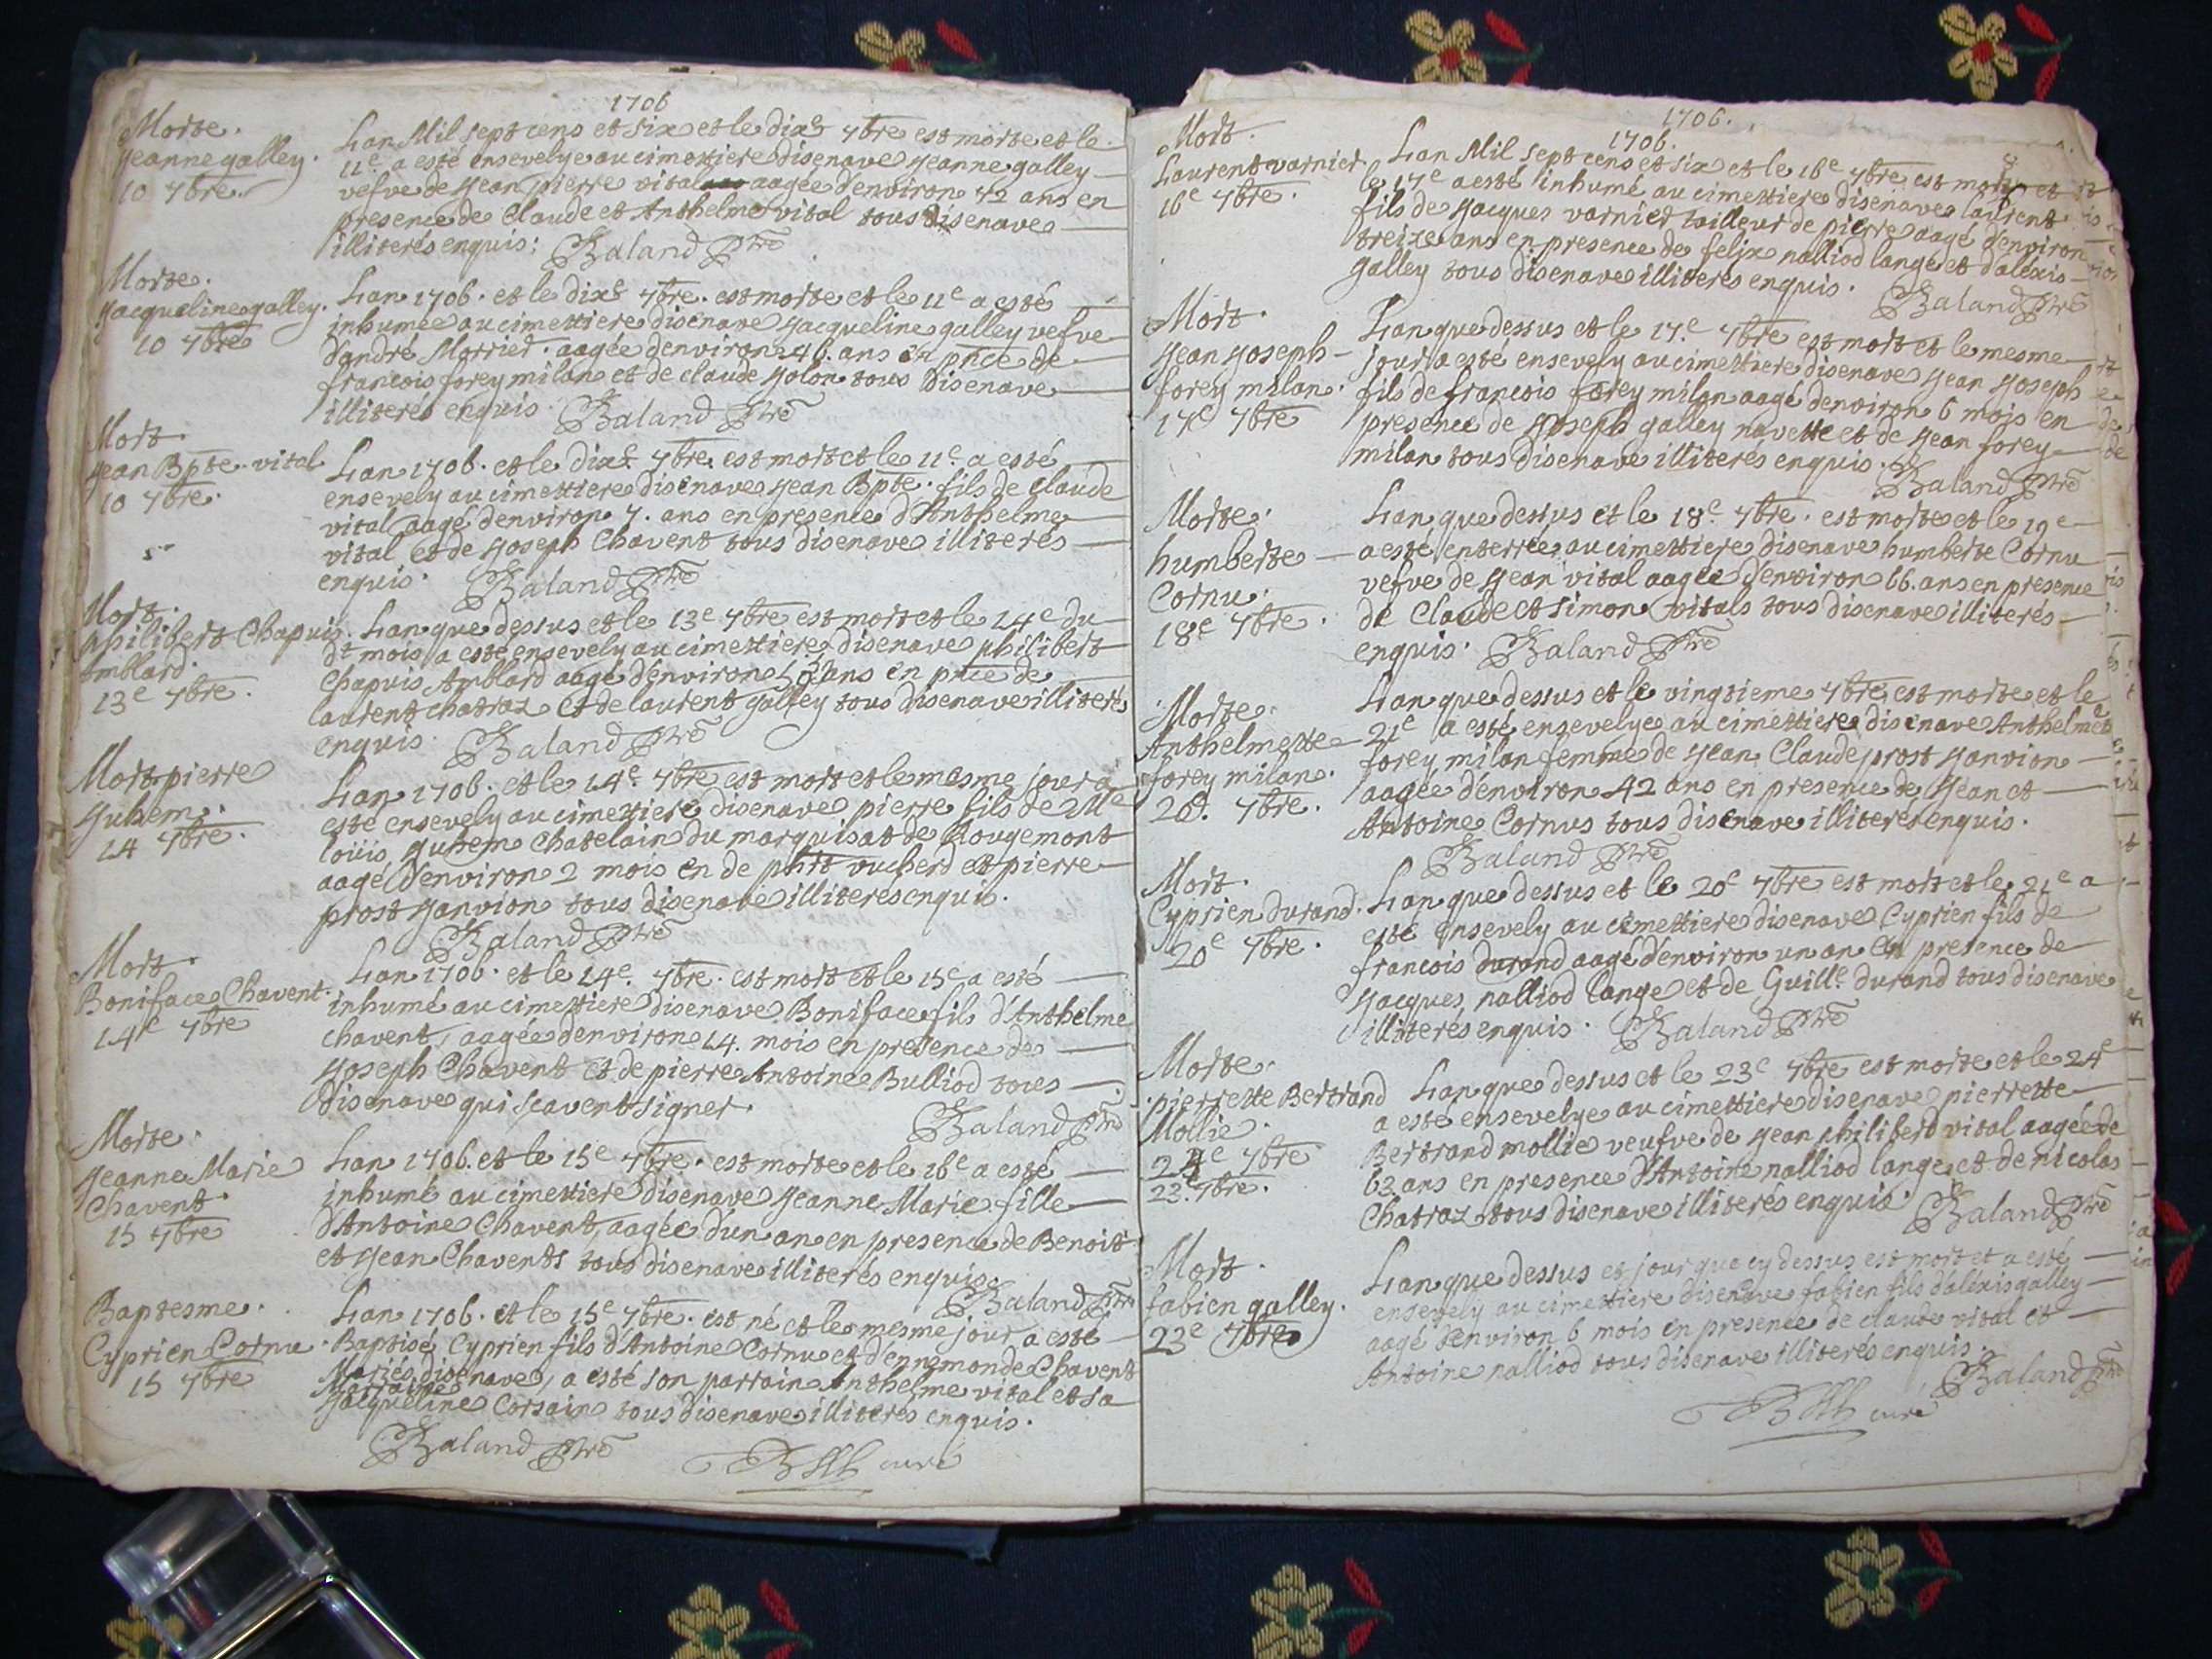 1706
Morte.
Jeanne galley.
10 7bre.
Lan Mil sept cens et six et le dixe 7bre est morte et le
11e. a esté ensevelye au cimettiere disenave Jeanne galley
vefve de Jean pierre vital aagée denviron 72 ans en
presence de Claude et Anthelme vital tous disenave
illiterés enquis: Baland ptre
Morte.
Jacqueline galley.
10 7bre
Lan 1706. et le dixe 7bre. est morte et le 11e a esté
inhumée au cimettiere disenave Jacqueline galley vefve
dandré Morrier. aagée denviron 46. ans en pnce de
francois forey milan et de claude Jolon tous disenave
illiterés enquis. Baland ptre
Mort.
Jean Bpte. vital
10 7bre.
Lan 1706. et le dixe 7bre. est mort et le 11e. a esté
ensevely au cimettiere disenave Jean Bpte. fils de Claude
vital aagé denviron 7. ans en presence d'Anthelme
vital et de Joseph Chavent tous disenave illiterés
enquis. Baland ptre
Mort.
philibert Chapuis
Amblard.
13e 7bre.
Lan que dessus et le 13e 7bre est mort et le 14e du
dt mois a esté ensevely au cimettiere disenave philibert
Chapuis Amblard aagé denviron ans en pnce de
laurent chatraz et de laurent galley tous disenave illiterés
enquis. Baland ptre
Mort pierre
Juhem.
14 7bre.
Lan 1706. et le 14e. 7bre est mort et le mesme jour a
esté ensevely au cimettiere disenave pierre fils de Me
loüis Juhem Chatelain du marquisat de Rougemont
aagé denviron 2 mois en de phit vucherd et pierre
prost Janvion tous disenave illiterés enquis.
Baland ptre
Mort.
Boniface Chavent.
14e 7bre
Lan 1706. et le 14e. 7bre. est mort et le 15e a esté
inhumé au cimettiere disenave Boniface fils d'Anthelme
chavent, aagée denviron 14. mois en presence de
Joseph Chavent et de pierre Antoine Bulliod tous
disenave qui scavent signer.
Baland ptre
Morte.
Jeanne Marie
Chavent.
15 7bre
Lan 1706. et le 15e 7bre. est morte et le 16e a esté
inhumé au cimettiere disenave Jeanne Marie fille
d'Antoine Chavent, aagée d'un an en presence de Benoit
et Jean Chavents tous disenave illiterés enquis.
Baland ptre
Baptesme.
Cyprien Cornu.
15 7bre
Lan 1706. et le 15e 7bre. est né et le mesme jour a esté
Baptisé Cyprien fils d'Antoine Cornu et d'ennemonde Chavent
Mariés disenave, a esté son parrain Anthelme vital et sa
Marraine
Jacqueline Corsain tous disenave illiterés enquis.
Baland ptre
curé
1706.
1706.
Mort.
Laurent varnier.
16e 7bre.
Lan Mil sept cens et six et le 16e 7bre est mort et
le 17e a esté inhumé au cimettiere disenave laurent
fils de Jacques varnier tailleur de pierre aagé denviron
treize ans en presence de felix nalliod lange et dalexis
galley tous disenave illiterés enquis.
Baland ptre
Mort.
Jean Joseph
forey milan.
17e 7bre
Lan que dessus et le 17e. 7bre est mort et le mesme
jour a esté ensevely au cimettiere disenave Jean Joseph
fils de francois forey milan aagé denviron 6 mois en
presence de Joseph galley navette et de Jean forey
milan tous disenave illiterés enquis.
Baland ptre
Morte.
humberte
Cornu.
18e 7bre.
Lan que dessus et le 18e. 7bre. est morte et le 19e
a esté enterrée au cimettiere disenave humberte Cornu
vefve de Jean vital aagée denviron 66. ans en presence
de Claude et Simon vitals tous disenave illiterés
enquis. Baland ptre
Morte.
Anthelmette
forey milan.
20. 7bre.
Lan que dessus et le vingtieme 7bre est morte et le
21e a esté ensevelye au cimettiere disenave Anthelmete
forey milan femme de Jean Claude prost Janvion
aagée denviron 42 ans en presence de Jean et
Antoine Cornus tous disenave illiterés enquis.
Baland ptre
Mort.
Cyprien durand.
20e 7bre.
Lan que dessus et le 20e 7bre est mort et le 21e a
esté ensevely au cimettiere disenave Cyprien fils de
francois durand aagé denviron un an en presence de
Jacques nalliod lange et de Guille. durand tous disenave
illiterés enquis. Baland ptre
Morte.
pierrette Bertrand
Mollie.
7bre
23e. 7bre.
Lan que dessus et le 23e 7bre est morte et le 24e
a esté ensevelye au cimettiere disenave pierrette
Bertrand mollie veufve de Jean philibert vital aagée de
63 ans en presence d'Antoine nalliod lange et de nicolas
Chatraz tous disenave illiterés enquis.
Baland ptre
Mort.
fabien galley.
23e 7bre
Lan que dessus et jour que cy dessus est mort et a esté
ensevely au cimettiere disenave fabien fils dalexis galley
aagé denviron 6 mois en presence de claude vital et
Antoine nalliod tous disenave illiterés enquis.
Baland ptre
curé